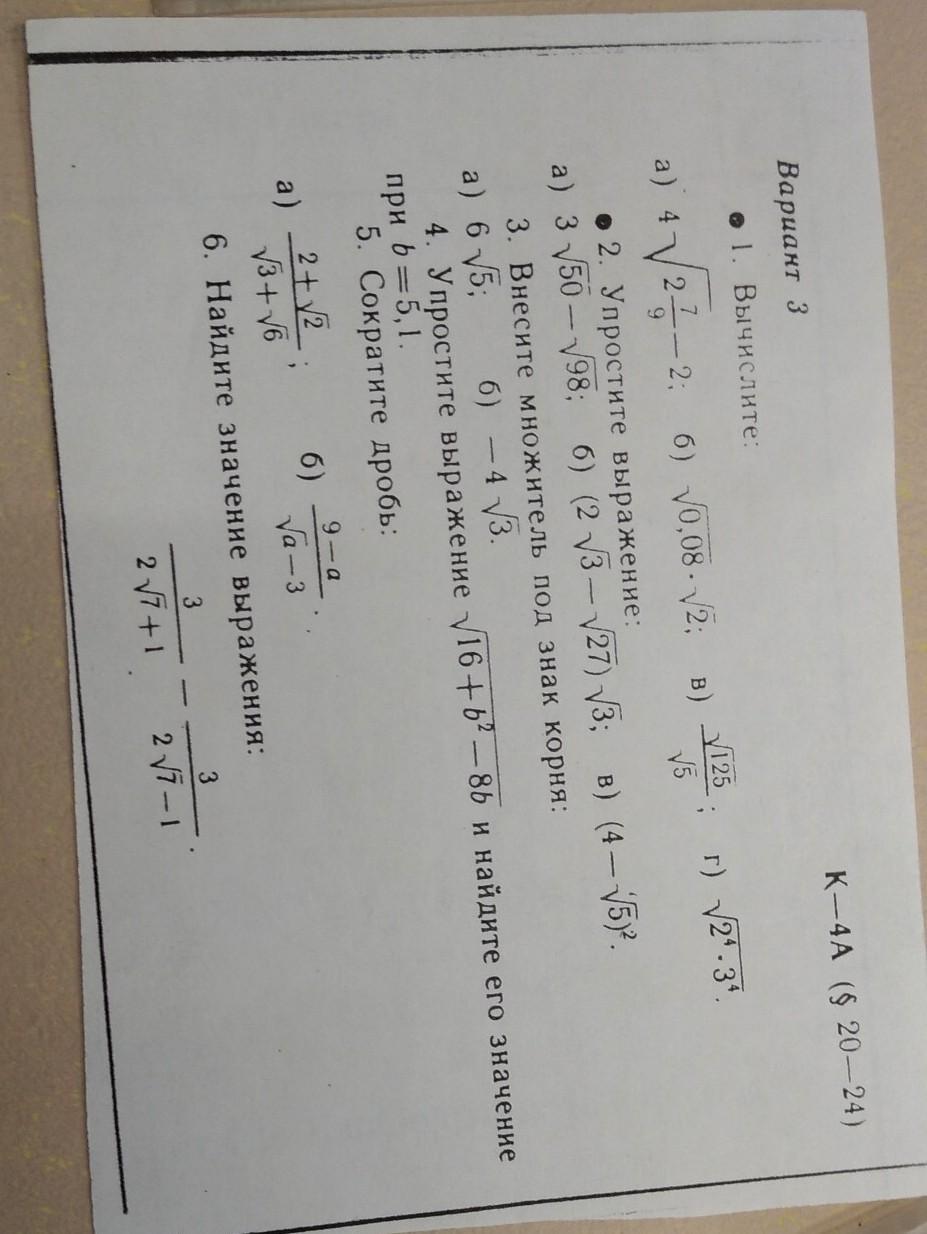 К—4А (§ 20—24)
Вариант 3
● 1. Вычислите:
а) 4√(2 7/9) — 2; б) √0,08 · √2; в) √125/√5; г) √(2⁴ · 3⁴).
● 2. Упростите выражение:
а) 3√50 — √98; б) (2√3 — √27)√3; в) (4 — √5)².
3. Внесите множитель под знак корня:
а) 6√5; б) — 4√3.
4. Упростите выражение √(16 + b² — 8b) и найдите его значение
при b = 5,1.
5. Сократите дробь:
а) (2 + √2)/(√3 + √6); б) (9 — a)/(√a — 3).
6. Найдите значение выражения:
3/(2√7 + 1) — 3/(2√7 — 1).